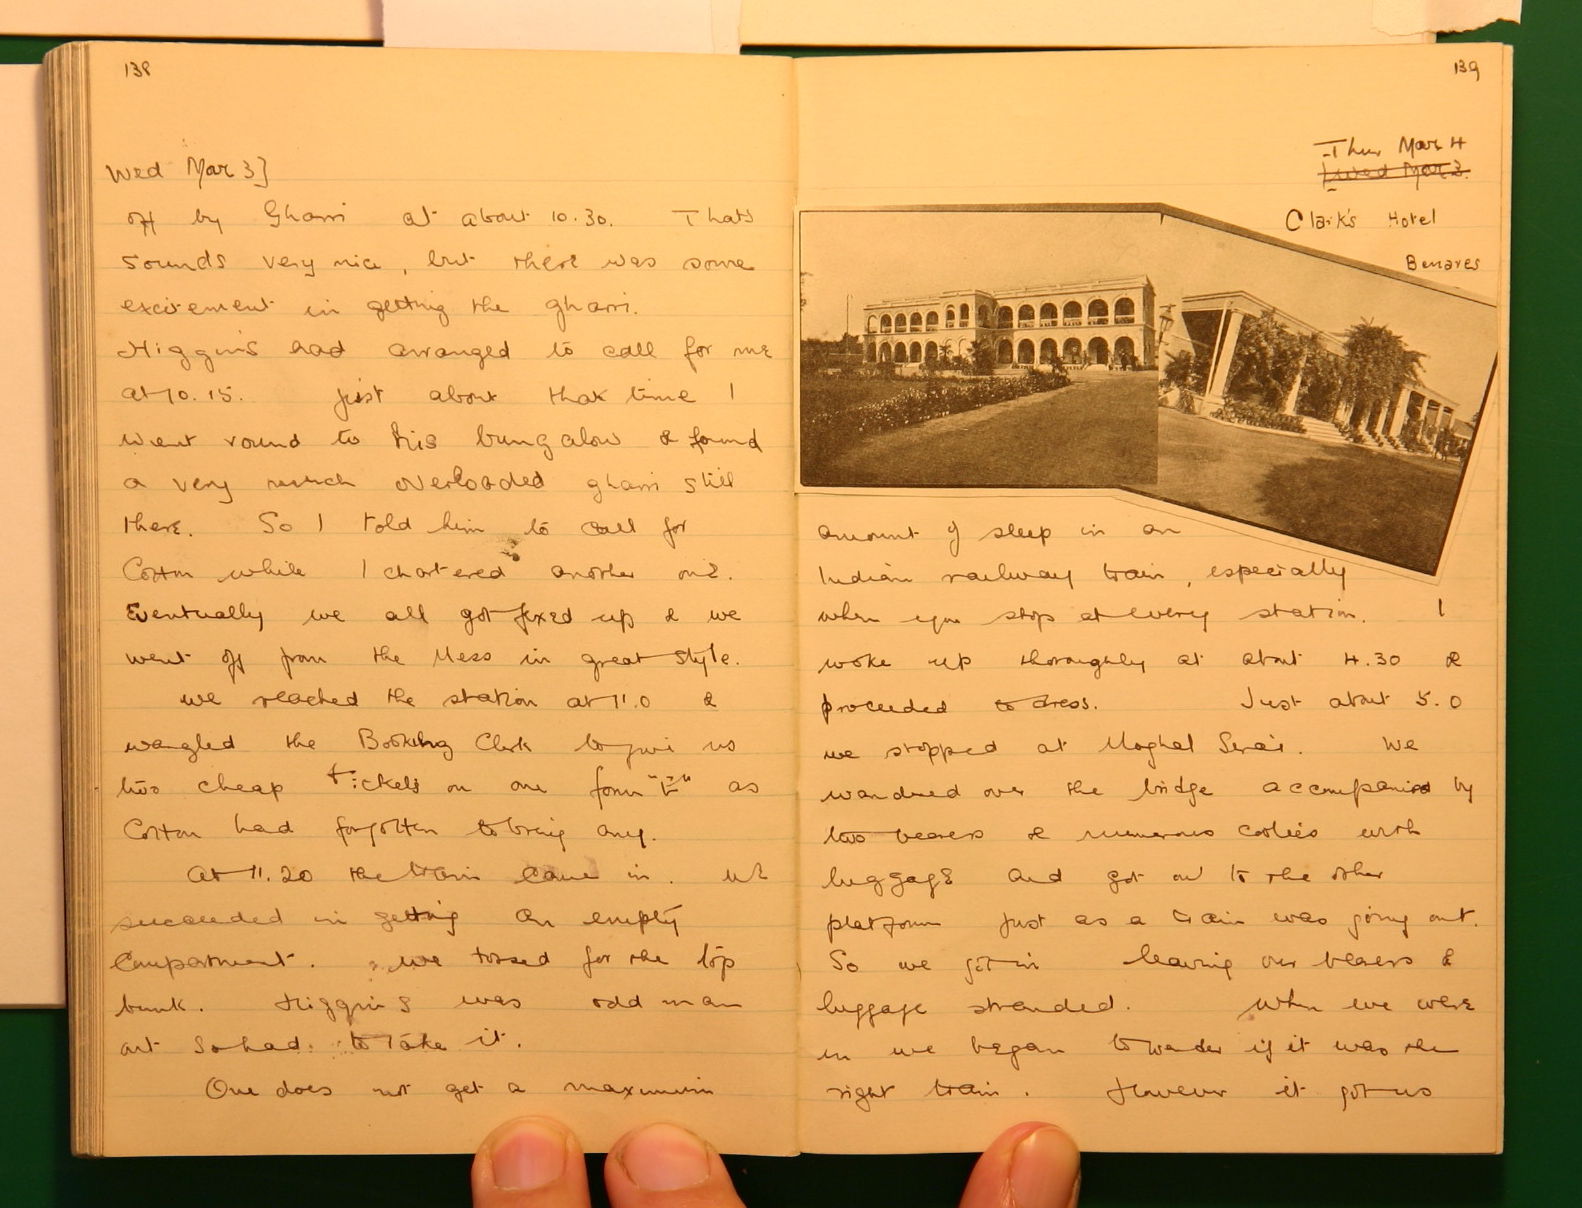 138
Wed Mar 3]
off by Gharri at about 10.30. That
sounds very nice, but there was some
excitement in getting the gharri.
Higgins had arranged to call for me
at 10.15. Just about that time I
went round to his bungalow & found
a very much overloaded gharri still
there. So I told him to call for
Cotton while I chartered another one.
Eventually we all got fixed up & we
went off from the Mess in great style.
We reached the station at 11.0 &
wangled the Booking Clerk to give us
two cheap tickets on one form "E" as
Cotton had forgotten to bring any.
At 11.20 the train came in. We
succeeded in getting an empty
compartment. We tossed for the top
bunk. Higgins was odd man
out so had to take it.
One does not get a maximum
139
Thur Mar 4
[Wed Mar 3.
Clark's Hotel
Benares
amount of sleep in an
Indian railway train, especially
when you stop at every station. I
woke up thoroughly at about 4.30 &
proceeded to dress. Just about 5.0
we stopped at Moghal Serai. We
wandered over the bridge accompanied by
two bearers & numerous coolies with
luggage and got on to the other
platform just as a train was going out.
So we got in leaving our bearers &
luggage stranded. When we were
in we began to wonder if it was the
right train. However it got us